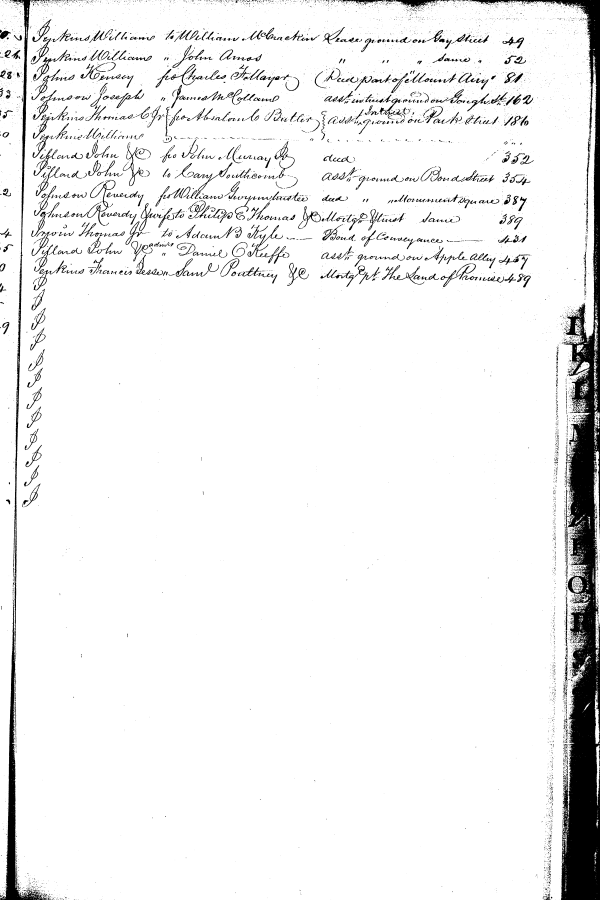 Jenkins William to William McCrackin Lease ground on Gay Street 49
Jenkins William " John Amos " " " same " 52
Johns Kensey fro Charles F Mayer Deed part of "Mount Airy" 81
Johnson Joseph " James McCollam asst. in trust ground on Gough St. 162
Jenkins Thomas C Jr fro Abraham C Butler asst. Int &c. ground on Park Street 186
Jenkins William
Pillard John &C fro John Murray deed 352
Pillard John &C to Cary Southcomb asst. ground on Bond Street 354
Johnson Reverdy fro William Gwynn trustee deed " " Monument square 387
Johnson Reverdy & wife to Philip E Thomas &C Mortge. & trust same 389
Irwin Thomas Jr to Adam B Kyle Bond of Conveyance 421
Pillard John &C admrs " Daniel O Keeffe asst. ground on Apple Alley 457
Jenkins Francis Jesse " Saml Poultney &C Mortge. pt. The Land of Promise 489